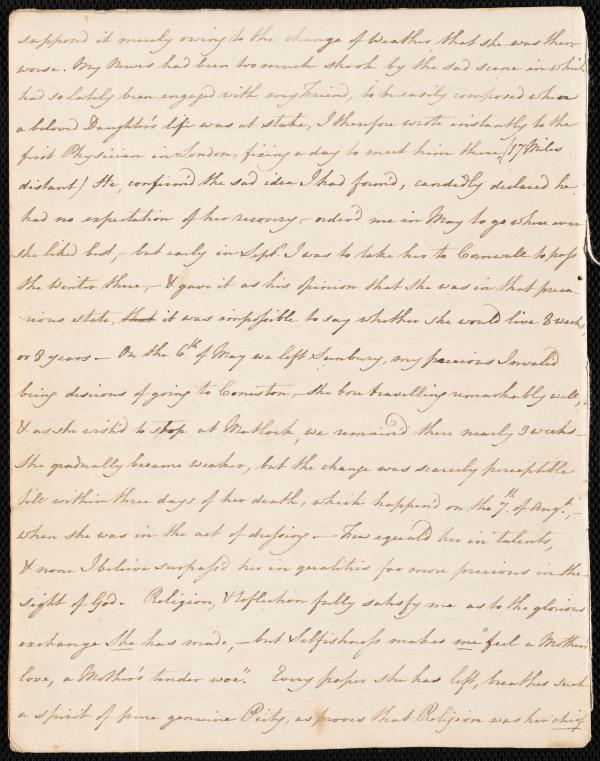 supposed it merely owing to the change of weather that she was then
worse. My Nerves had been too much shook by the sad scene in which
had so lately been engaged with my Friend, to be easily composed when
a beloved Daughter's life was at stake, I therefore wrote instantly to the
first Physician in London, fixing a day to meet him there, (17 Miles
distant) He, confirm'd the sad idea I had form'd, candidly declared he
had no expectation of her recovery, – order'd me in May to go where ever
she liked best, – but early in Sept. I was to take her to Cornwall to pass
the Winter there, – & gave it as his opinion that she was in that preca
rious state, that it was impossible to say whether she would live 8 weeks,
or 8 years – On the 6th of May we left Sunbury, my precious Invalid
being desirous of going to Coniston, – she bore travelling remarkably well,
& as she wish'd to stop at Matlock, we remain'd there nearly 3 weeks –
She gradually became weaker, but the change was scarcely perceptible
till within three days of her death, which happen'd on the 7th. of Augt, –
when she was in the act of dressing – – Few equal'd her in talents,
& none I believe surpass'd her in qualities far more precious in the
sight of God. Religion, & Reflection fully satisfy me as to the glorious
exchange She has made, – but Selfishness makes me "feel a Mother's
love, a Mother's tender woe". Every paper she has left, breathes such
a spirit of pure genuine Piety, as proves that Religion was her chief